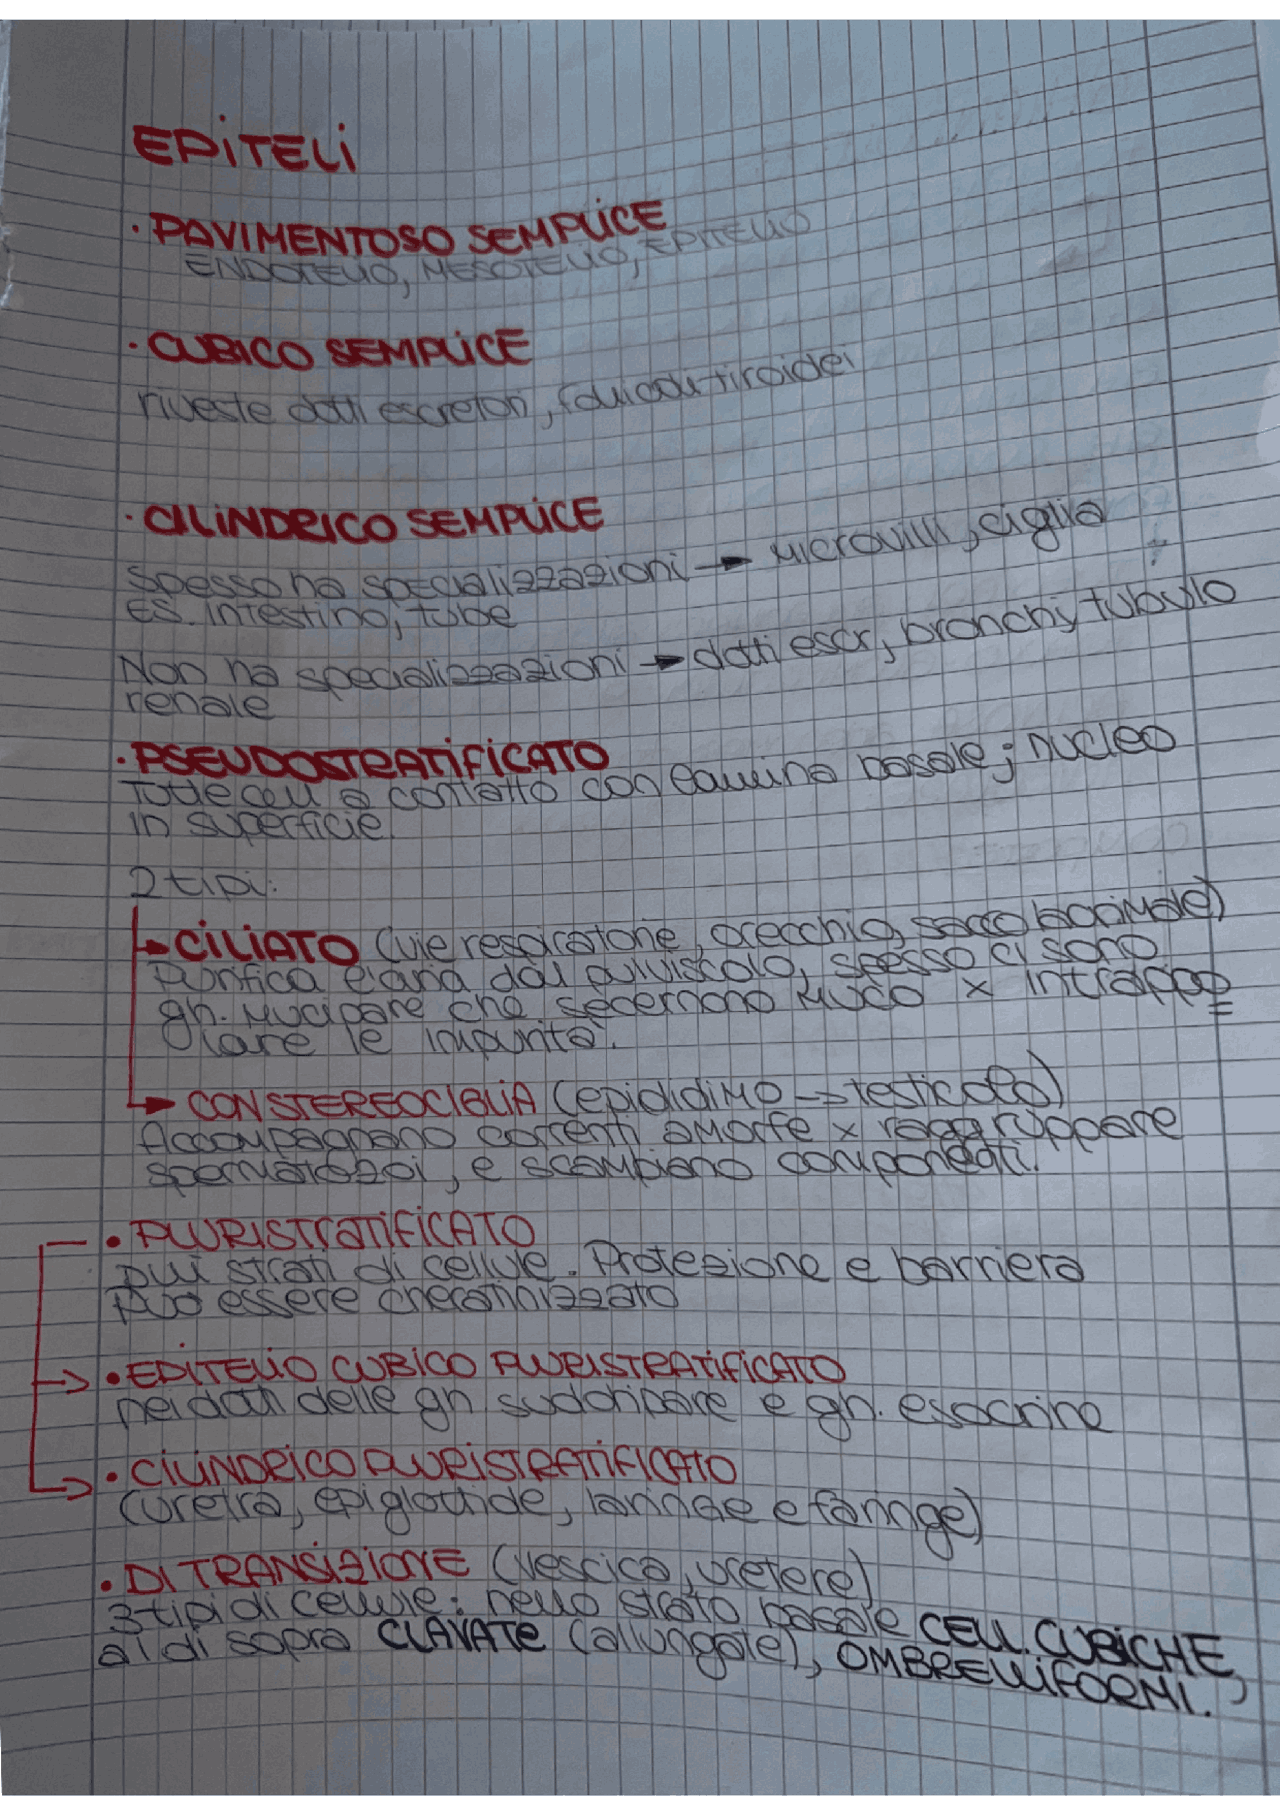 EPITELI
· PAVIMENTOSO SEMPLICE
ENDOTELIO, MESOTELIO, EPITELIO
· CUBICO SEMPLICE
riveste dotti escretori, follicoli tiroidei
· CILINDRICO SEMPLICE
spesso ha specializzazioni → microvilli, ciglia
ES. intestino, tube
Non ha specializzazioni → dotti escr, bronchi, tubulo
renale
· PSEUDOSTRATIFICATO
Tutte cell a contatto con lamina basale; nucleo
in superficie.
2 tipi:
→ CILIATO (vie respiratorie, orecchio, sacco lacrimale)
Purifica l'aria dal pulviscolo, spesso ci sono
gh. mucipare che secernono muco x intrappo
lare le impurità.
→ CON STEREOCIGLIA (epididimo -> testicolo)
Accompagnano correnti amorfe x raggruppare
spermatozoi, e scambiano componenti.
• PLURISTRATIFICATO
più strati di cellule. Protezione e barriera
Può essere cheratinizzato
→ • EPITELIO CUBICO PLURISTRATIFICATO
nei dotti delle gh sudoripare e gh. esocrine
→ • CILINDRICO PLURISTRATIFICATO
(uretra, epiglottide, laringe e faringe)
• DI TRANSIZIONE (vescica, uretere)
3 tipi di cellule: nello strato basale CELL. CUBICHE,
al di sopra CLAVATE (allungate), OMBRELLIFORMI.